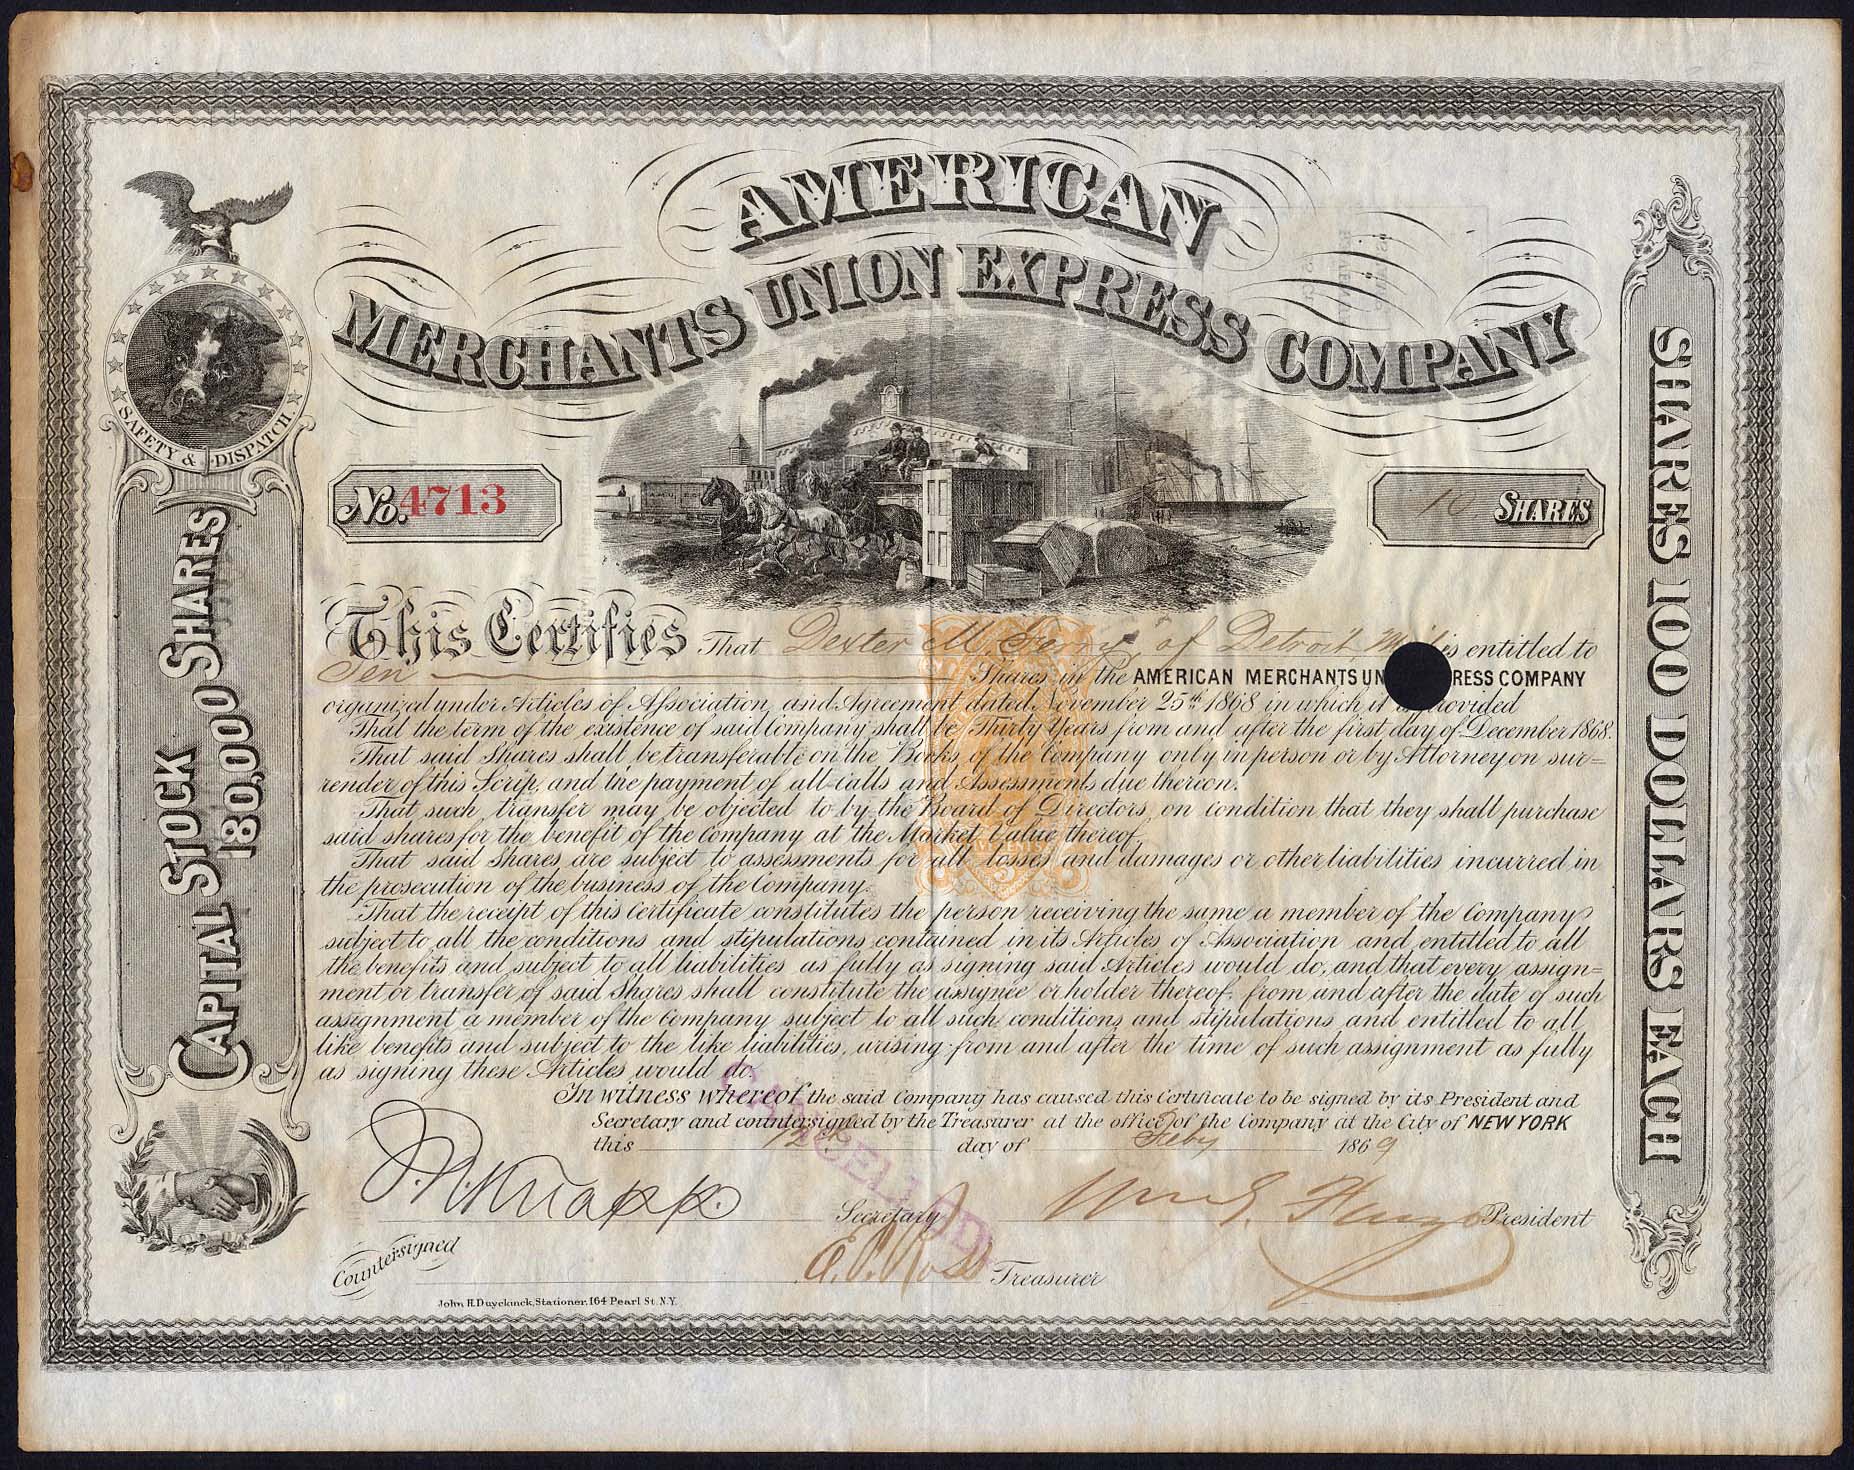 AMERICAN
MERCHANTS UNION EXPRESS COMPANY
SAFETY & DISPATCH
No. 4713
10 SHARES
CAPITAL STOCK 180,000 SHARES
SHARES 100 DOLLARS EACH
This Certifies That Dexter M. Ferry, of Detroit Mich is entitled to
Ten Shares in the AMERICAN MERCHANTS UN RESS COMPANY
organized under Articles of Association, and Agreement dated November 25th 1868 in which it is provided
That the term of the existence of said Company shall be Thirty Years from and after the first day of December 1868.
That said Shares shall be transferable on the Books of the Company only in person or by Attorney on sur=
render of this Scrip, and the payment of all Calls and Assessments due thereon.
That such transfer may be objected to by the Board of Directors, on condition that they shall purchase
said shares for the benefit of the Company at the Market Value thereof.
That said Shares are subject to assessments for all losses and damages or other liabilities incurred in
the prosecution of the business of the Company.
That the receipt of this Certificate constitutes the person receiving the same a member of the Company
subject to all the conditions and stipulations contained in its Articles of Association and entitled to all
the benefits and subject to all liabilities as fully as signing said Articles would do, and that every assign=
ment or transfer of said Shares shall constitute the assignee or holder thereof, from and after the date of such
assignment a member of the Company subject to all such conditions and stipulations and entitled to all
like benefits and subject to the like liabilities, arising from and after the time of such assignment as fully
as signing these Articles would do.
In witness whereof the said Company has caused this Certificate to be signed by its President and
Secretary and countersigned by the Treasurer at the office of the Company at the City of NEW YORK
this 12th day of Feby 1869
CANCELLED
J. N. Knapp Secretary
Wm. G. Fargo President
Countersigned
Treasurer
John H. Duyckinck, Stationer, 164 Pearl St. N.Y.